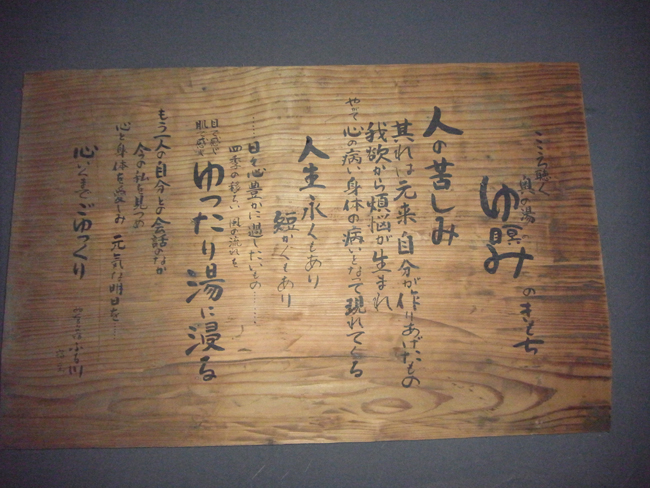 こころ聴く
奥の湯
ゆ瞑み のきもち
人の苦しみ
其れは元来 自分が作りあげたもの
我欲から煩悩が生まれ
やがて 心の病い身体の病いとなって現れてくる
人生永くもあり
短かくもあり
日々心豊かに過したいもの………
四季の移ろい 風の流れを
目で感じ
肌で感じ
ゆったり湯に浸る
もう一人の自分との会話のなか
今の私を見つめ
心と身体を 元気な明日を…
心いくまで ごゆっくり